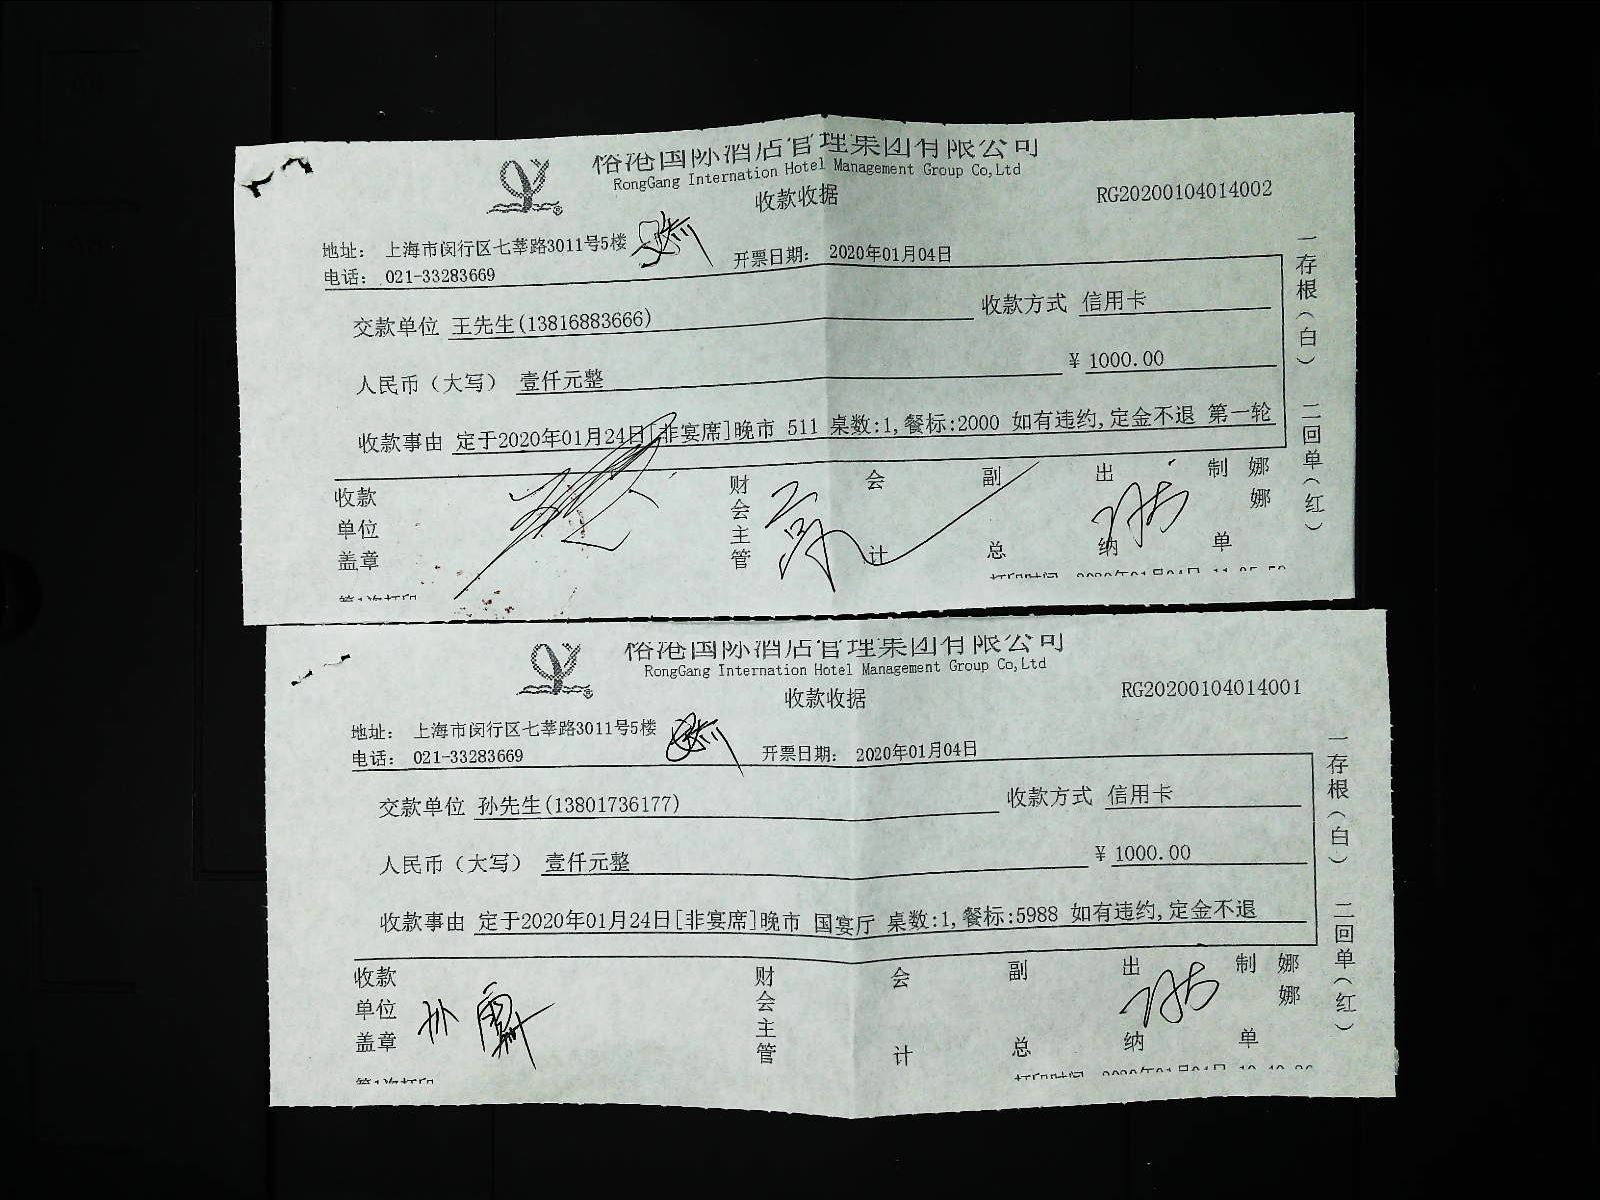 裕港国际酒店管理集团有限公司
RongGang Internation Hotel Management Group Co,Ltd
收款收据
RG20200104014002
地址: 上海市闵行区七莘路3011号5楼
电话: 021-33283669
开票日期: 2020年01月04日
交款单位 王先生(13816883666)
收款方式 信用卡
人民币（大写） 壹仟元整
¥ 1000.00
收款事由 定于2020年01月24日[非宴席]晚市 511 桌数:1,餐标:2000 如有违约,定金不退 第一轮
收款单位盖章
财会主管
会计
副总
出纳
制单
娜娜
一存根（白） 二回单（红）
第1次打印
打印时间 2020年01月04日
裕港国际酒店管理集团有限公司
RongGang Internation Hotel Management Group Co,Ltd
收款收据
RG20200104014001
地址: 上海市闵行区七莘路3011号5楼
电话: 021-33283669
开票日期: 2020年01月04日
交款单位 孙先生(13801736177)
收款方式 信用卡
人民币（大写） 壹仟元整
¥ 1000.00
收款事由 定于2020年01月24日[非宴席]晚市 国宴厅 桌数:1,餐标:5988 如有违约,定金不退
收款单位盖章
孙
财会主管
会计
副总
出纳
制单
娜娜
一存根（白） 二回单（红）
第1次打印
打印时间 2020年01月04日